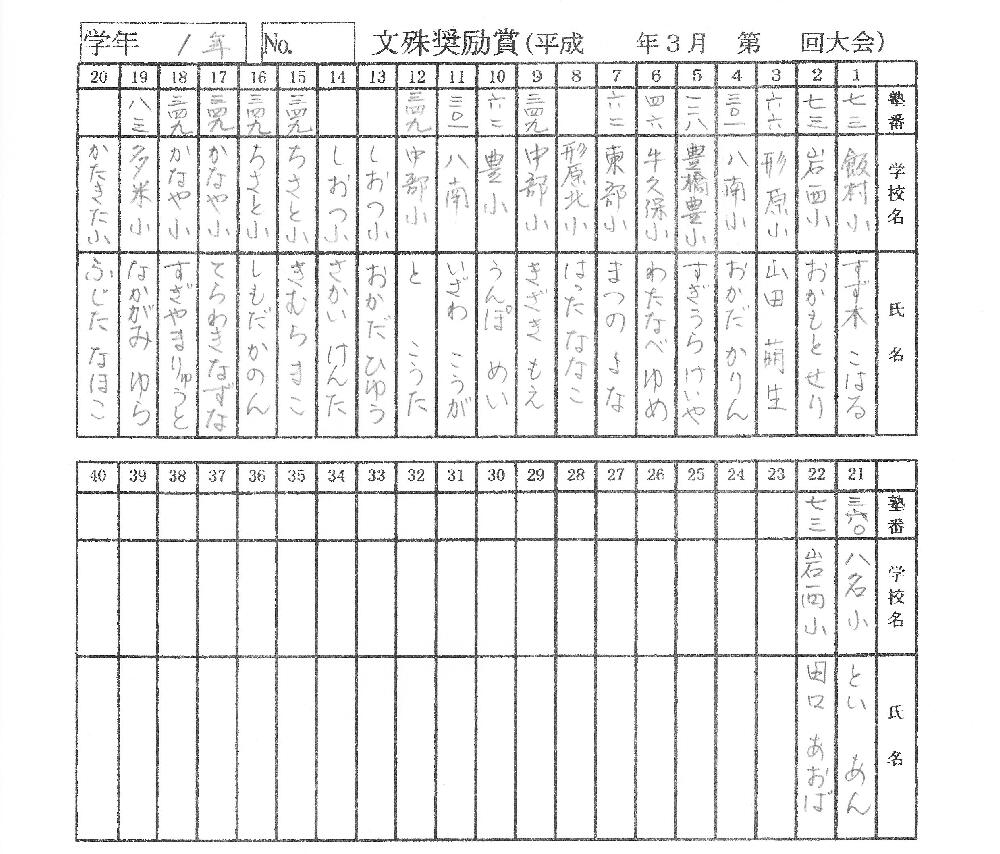 学年 1年 No. 文殊奨励賞(平成 年3月 第 回大会)
塾番 学校名 氏名
1 七三 飯村小 すず木 こはる
2 七三 岩西小 おかもと せり
3 六六 形原小 山田 萌生
4 三〇一 八南小 おかだ かりん
5 二二八 豊橋豊小 すぎうら けいや
6 四六 牛久保小 わたなべ ゆめ
7 六二 東部小 まつの よな
8 形原北小 はった ななこ
9 三四九 中部小 きざき もえ
10 六二 豊小 うんぽ めい
11 三〇一 八南 いざわ こうが
12 三四九 中部小 と こうた
13 しおつ小 おかだ ひゆう
14 しおつ小 さかい けんた
15 三四九 ちさと小 きむら まこ
16 三四九 ちさと小 しもだ かのん
17 三四九 かなや小 てらわき なずな
18 三四九 かなや小 すぎやま りゅうと
19 八三 多米小 なががみ ゆら
20 かたきた小 ふじた なほこ
塾番 学校名 氏名
21 三六〇 八名小 とい あん
22 七三 岩西小 田口 あおば
23
24
25
26
27
28
29
30
31
32
33
34
35
36
37
38
39
40